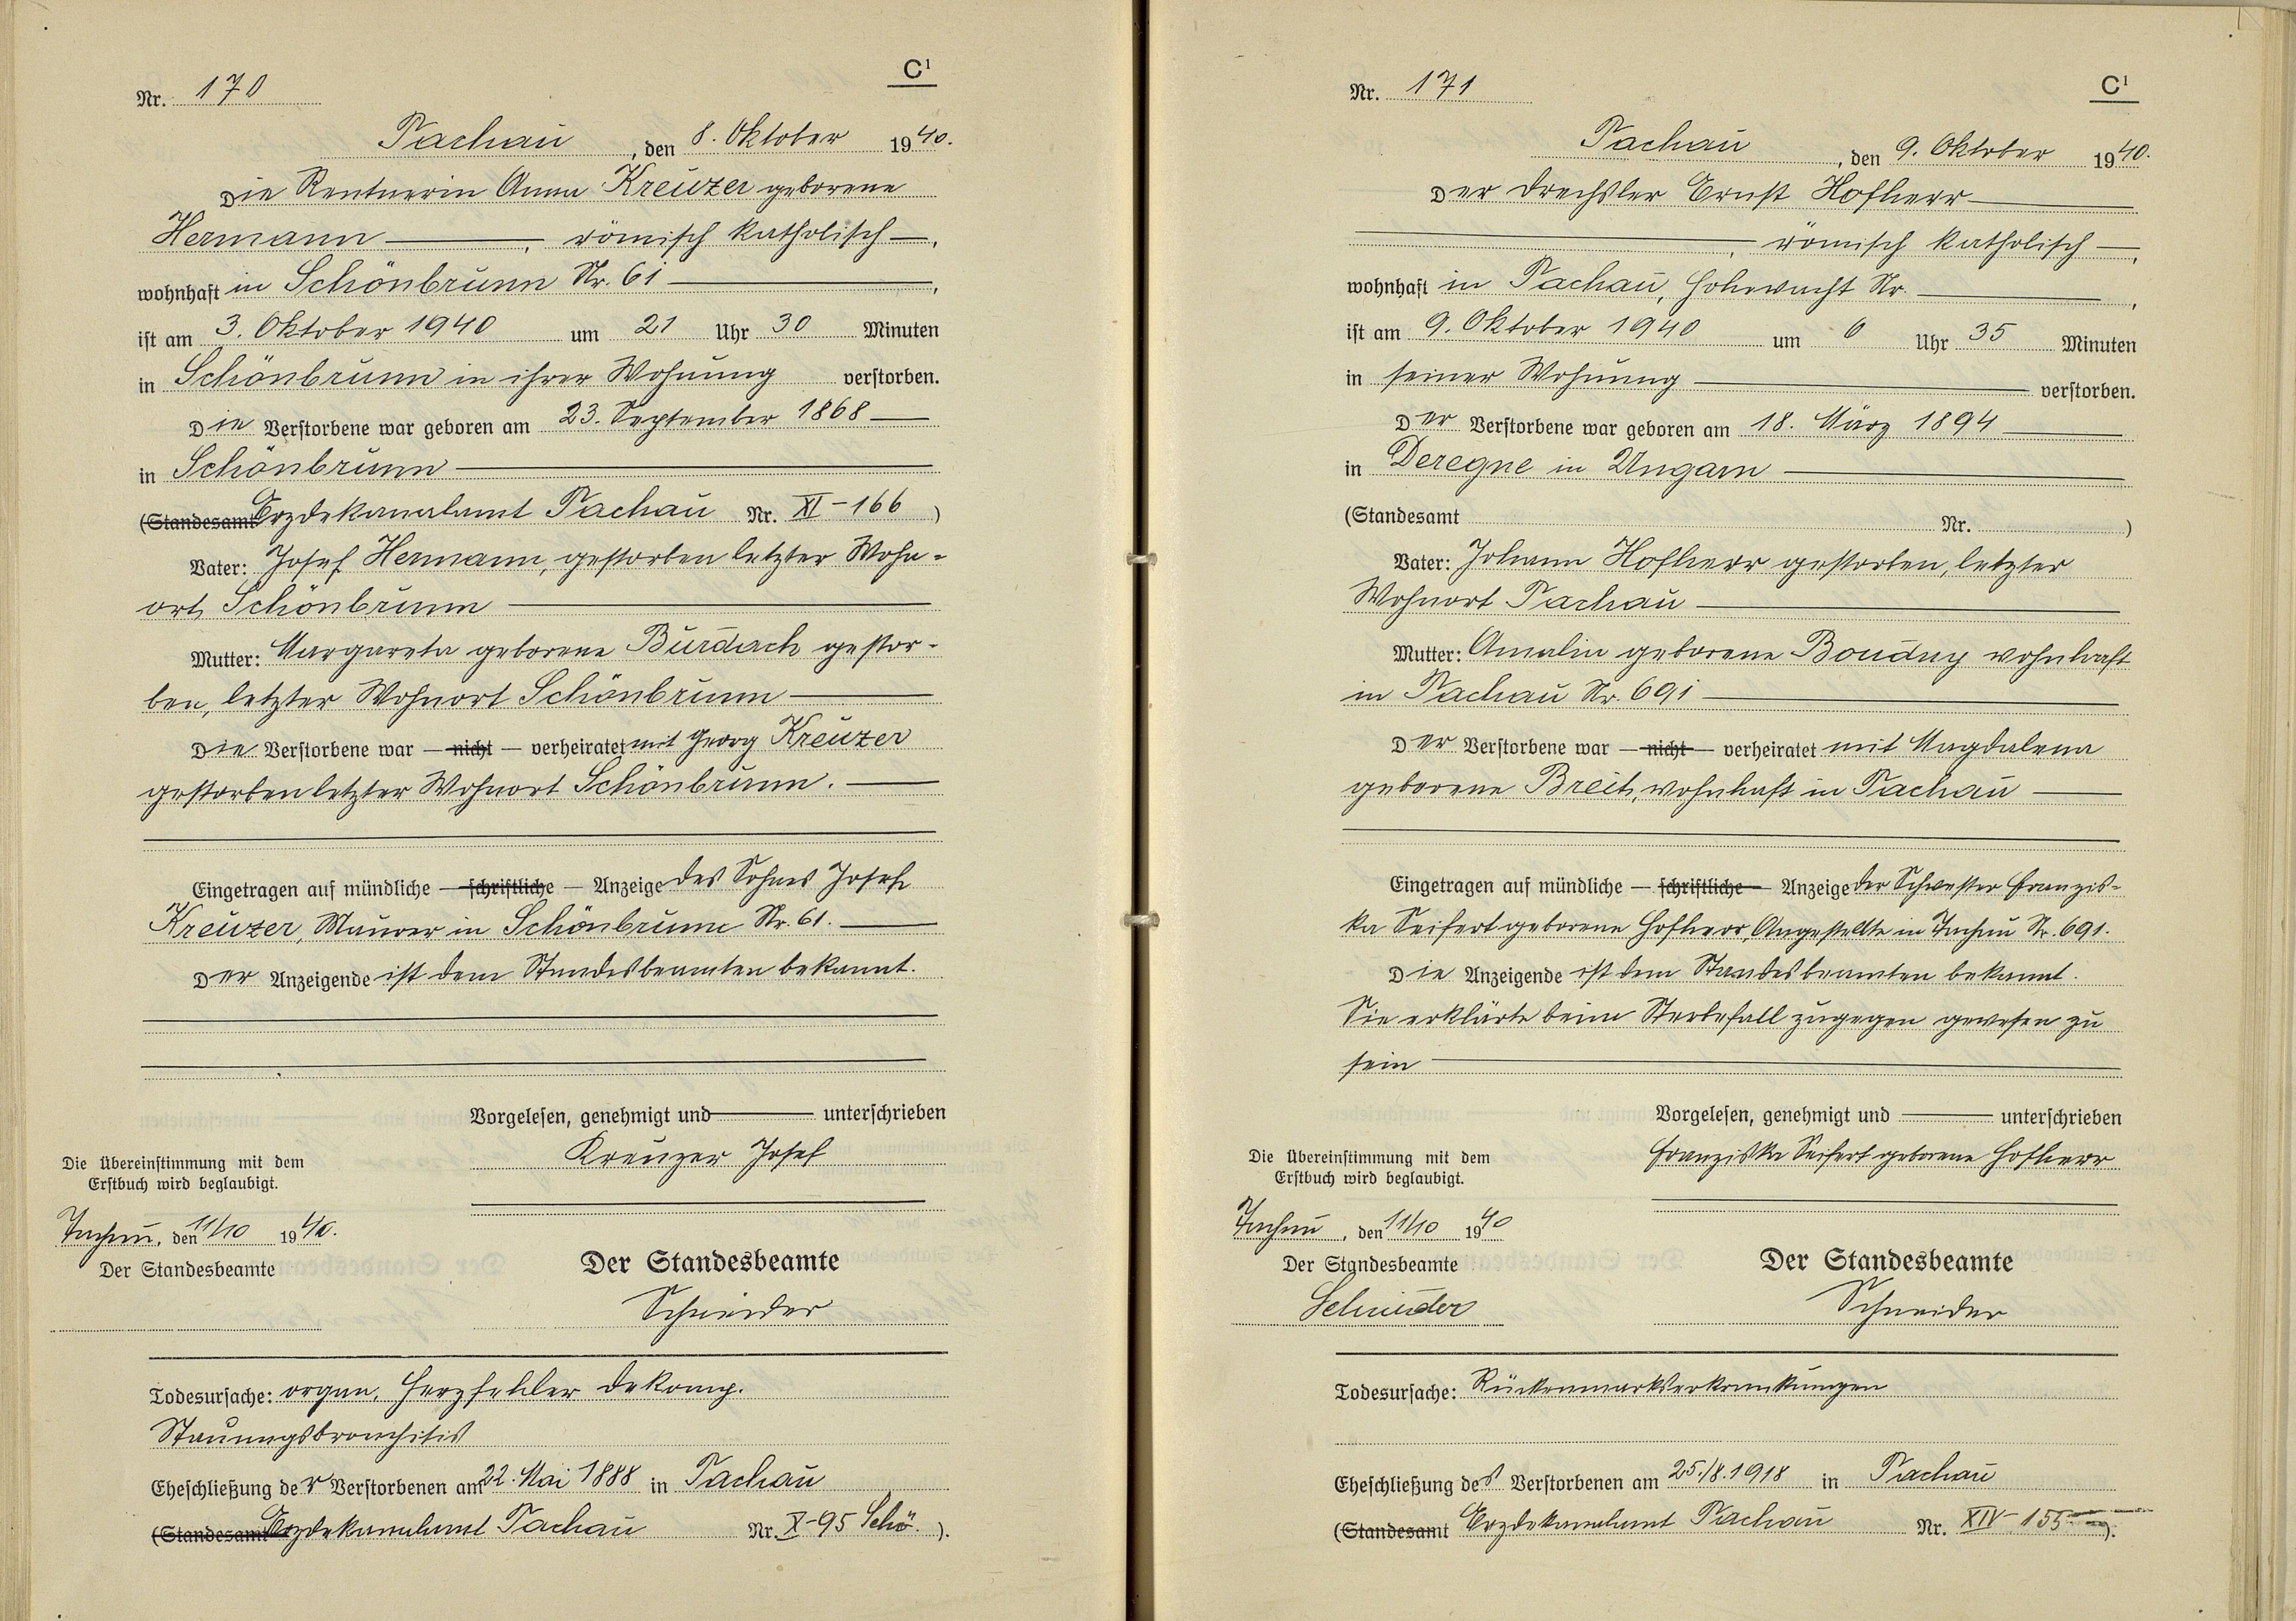 C¹
Nr. 170
Tachau, den 8. Oktober 1940.
Die Rentnerin Anna Kreuzer geborene
Hermann, römisch katholisch,
wohnhaft in Schönbrunn Nr. 61,
ist am 3. Oktober 1940 um 21 Uhr 30 Minuten
in Schönbrunn in ihrer Wohnung verstorben.
Die Verstorbene war geboren am 23. September 1868
in Schönbrunn
(Standesamt Erzdekanalamt Tachau Nr. XI-166)
Vater: Josef Hermann, gestorben letzter Wohn-
ort Schönbrunn
Mutter: Margareta geborene Burdach gestor-
ben, letzter Wohnort Schönbrunn
Die Verstorbene war — nicht — verheiratet mit Georg Kreuzer
gestorben letzter Wohnort Schönbrunn.
Eingetragen auf mündliche — schriftliche — Anzeige des Sohnes Josef
Kreuzer, Maurer in Schönbrunn Nr. 61.
Der Anzeigende ist dem Standesbeamten bekannt.
Vorgelesen, genehmigt und unterschrieben
Kreuzer Josef
Die Übereinstimmung mit dem
Erstbuch wird beglaubigt.
Tachau, den 11/10 1940.
Der Standesbeamte
Der Standesbeamte
Schneider
Todesursache: organ. Herzfehler dekomp.
Stauungsbronchitis
Eheschließung der Verstorbenen am 22. Mai 1888 in Tachau
(Standesamt Erzdekanalamt Tachau Nr. X-95 Schö.).
C¹
Nr. 171
Tachau, den 9. Oktober 1940.
Der Drechsler Ernst Hofherr
, römisch katholisch,
wohnhaft in Tachau, Hohewacht Nr.,
ist am 9. Oktober 1940 um 6 Uhr 35 Minuten
in seiner Wohnung verstorben.
Der Verstorbene war geboren am 18. März 1894
in Deregne in Ungarn
(Standesamt Nr. )
Vater: Johann Hofherr gestorben, letzter
Wohnort Tachau
Mutter: Amalia geborene Boudny wohnhaft
in Tachau Nr. 691
Der Verstorbene war — nicht — verheiratet mit Magdalena
geborene Breit, wohnhaft in Tachau
Eingetragen auf mündliche — schriftliche — Anzeige der Schwester Franzis-
ka Seifert geborene Hofherr, Angestellte in Tachau Nr. 691.
Die Anzeigende ist dem Standesbeamten bekannt.
Sie erklärte beim Sterbefall zugegen gewesen zu
sein
Vorgelesen, genehmigt und unterschrieben
Franziska Seifert geborene Hofherr
Die Übereinstimmung mit dem
Erstbuch wird beglaubigt.
Tachau, den 11/10 1940
Der Standesbeamte
Schneider
Der Standesbeamte
Schneider
Todesursache: Rückenmarkserkrankungen
Eheschließung des Verstorbenen am 25./8.1918 in Tachau
(Standesamt Erzdekanalamt Tachau Nr. XIV-155).